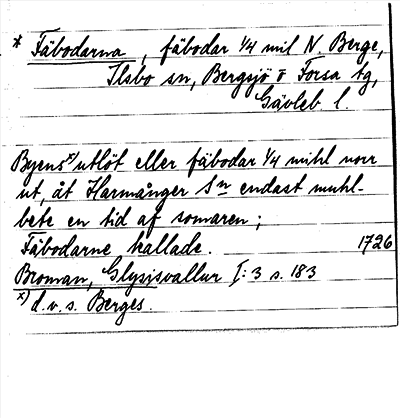 * Fäbodarna, fäbodar 1/4 mil N. Berge,
Ilsbo sn, Bergsjö o Forsa tg,
Gävleb l.
Byens x) utlöt eller fäbodar 1/4 mihl norr
ut, åt Harmånger Sn endast muhl-
bete en tid af somaren;
Fäbodarne kallade. 1726
Broman, Glysisvallur I:3 s. 183
x) d.v.s. Berges.